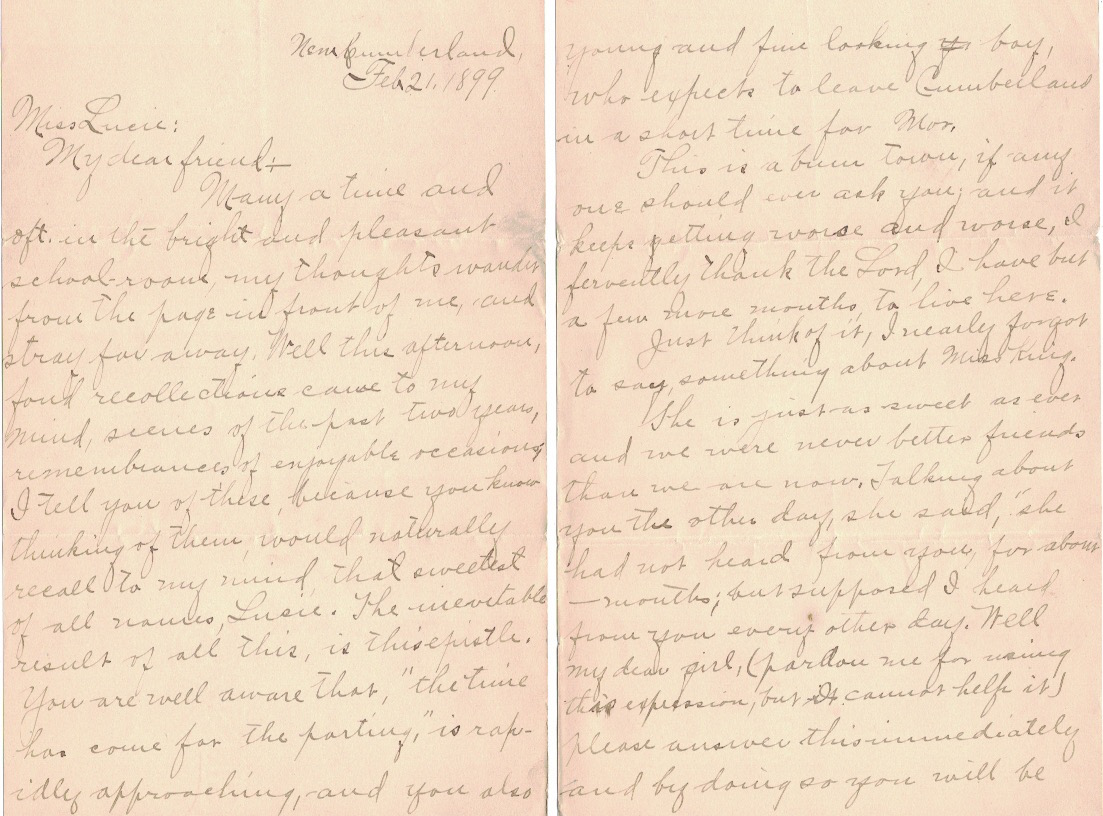 New Cumberland,
Feb. 21, 1899.
Miss Lucie:
My dear friend:—
Many a time and
oft. in the bright and pleasant
school-room, my thoughts wander
from the page in front of me, and
stray far away. Well this afternoon,
fond recollections came to my
mind, scenes of the past two years,
remembrances of enjoyable occasions,
I tell you of these, because you know
thinking of them, would naturally
recall to my mind, that sweetest
of all names, Lusie. The inevitable
result of all this, is this epistle.
You are well aware that, "the time
has come for the parting," is rap-
idly approaching, and you also
young and fine looking boy,
who expects to leave Cumberland
in a short time for Mor.
This is a bum town, if any
one should ever ask you; and it
keeps getting worse and worse, I
fervently thank the Lord, I have but
a few more months, to live here.
Just think of it, I nearly forgot
to say, something about Miss King.
She is just as sweet as ever
and we were never better friends
than we are now. Talking about
you the other day, she said, "she
had not heard from you, for about
— months; but supposed I heard
from you every other day. Well
my dear girl, (pardon me for using
this expression, but I cannot help it)
please answer this immediately
and by doing so you will be